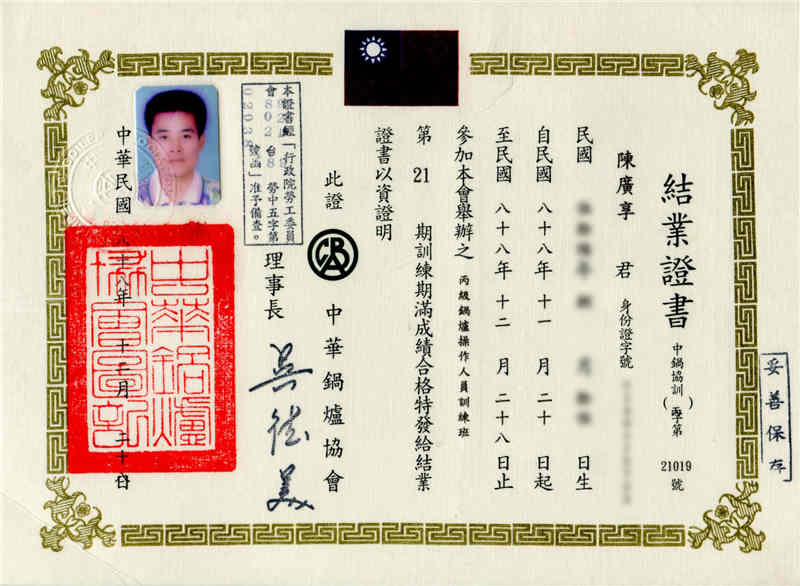 妥善保存
結業證書
中鍋協訓(丙)字第21019號
陳廣享君 身份證字號
民國 日生
自民國八十八年十一月二十日起
至民國八十八年十二月二十八日止
參加本會舉辦之丙級鍋爐操作人員訓練班
第21期訓練期滿成績合格特發給結業
證書以資證明
此證
CBA
中華鍋爐協會
理事長
本證書經「行政院勞工委員
會 台 勞中五字第
號函」准予備查。
中華民國八十八年十二月二十八日